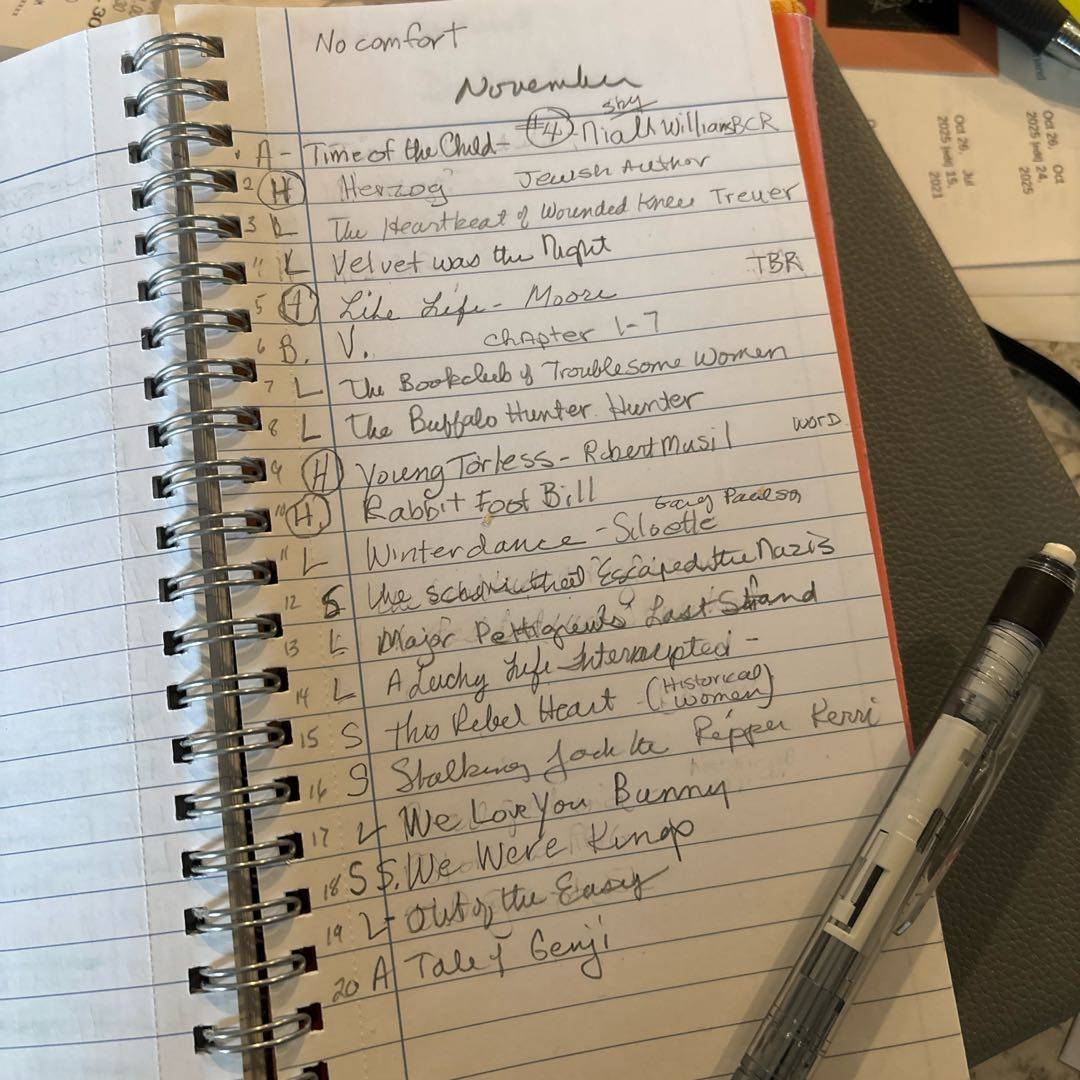 No comfort
November
shy
1 A - Time of the Child - #4 Niall Williams BCR
2 H Herzog Jewish Author
3 L The Heartbeat of Wounded Knee Treuer
4 L Velvet was the Night
TBR
5 Like Life - Moore
6 B. V. Chapter 1-7
7 L The Bookclub of Troublesome Women
8 L The Buffalo Hunter Hunter
WORD
9 H Young Torless - Robert Musil
10 H. Rabbit Foot Bill
Gary Paulson
11 L Winterdance - Siloette
12 S The School that Escaped the Nazis
13 L Major Pettigrew's Last Stand
14 L A Lucky Life Interrupted -
15 S This Rebel Heart - (Historical women)
16 S Stalking Jack the Ripper Kerri
17 L We Love You Bunny
18 S S. We Were Kings
19 L - Out of the Easy
20 A Tale of Genji
Oct 26, Jul
2025 15,
2021
Oct 26, Oct
2025 24,
2025